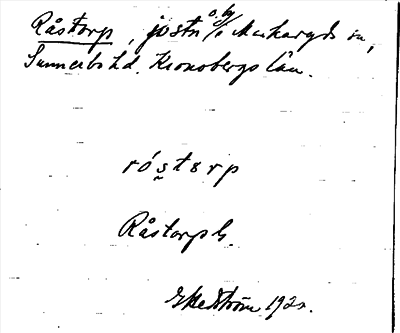 Råstorp, jostn o. by i Markaryds sn,
Sunnerbo hd. Kronobergs län.
róstorp
Råstorp G.
Ekedström 192